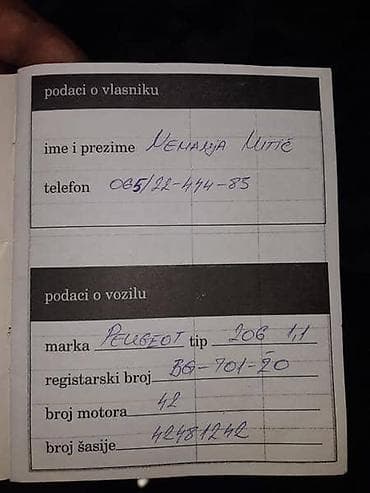 podaci o vlasniku
ime i prezime Nemanja Mitić
telefon 065/22-444-85
podaci o vozilu
marka PEUGEOT tip 206 1,1
registarski broj BG-701-ŽO
broj motora 42
broj šasije 42481242